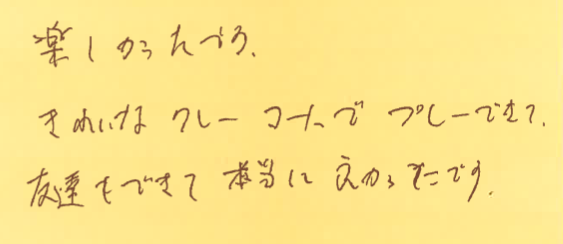 楽しかったです.
きれいな クレーコートで プレーできて.
友達もできて 本当に 良かったです.